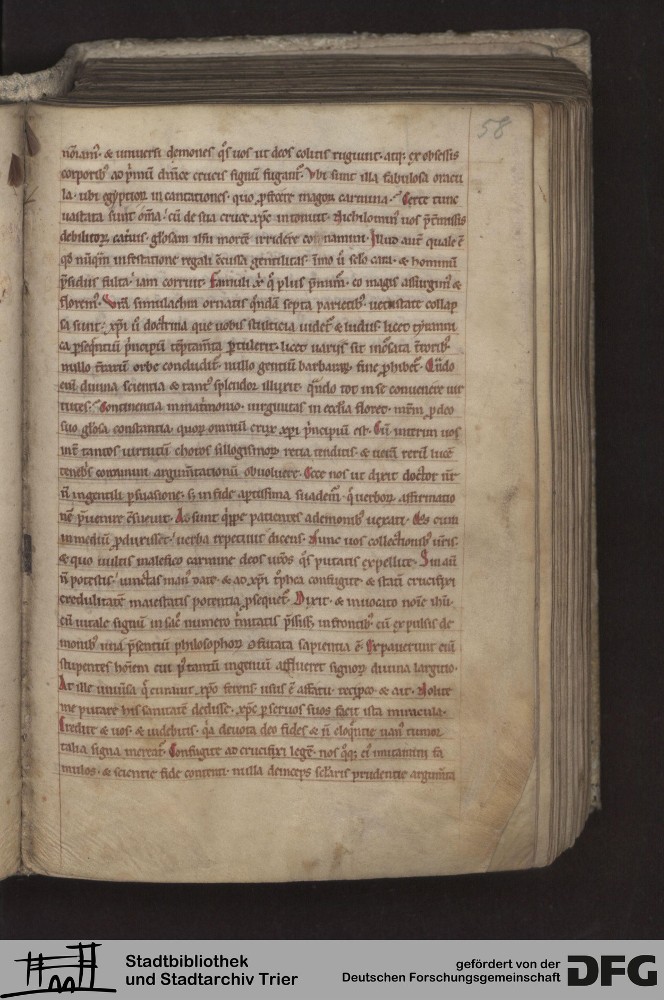 58
nōiam᷒. & uniuersi demones q̄s uos ut deos colitis rugiunt. atq; ex obsessis
corporib; ad p̄mū dn̄ice crucis signū fugant᷒. Vbi sunt illa fabulosa oracu
la. ubi egyptioꝝ incantationes. quo ꝓfecere magoꝝ carmina. Certe tunc
uastata sunt om̄ia. cū de sua cruce xp̄c intonuit. Nichilomin᷒ uos p̄t̄missis
debilitoꝝ cauis. gl̄osam ih̄u mortē irridere conamini. Illud aut̄ quale ē
qd̄ nūq̄m infestatione regali ēcussa gentilitas. īmo ū sc̄lo cara. & hominū
p̄sidiis fulta. iam corruit. Famuli x̄ q̄ plus p̄mim᷒. eo magis assurgim᷒ &
florem᷒. Vr̄a simulachra ornatis q̄ndā septa parietib; uetustate collap
sa sunt. xp̄i ū doctrina que uobis stulticia uidet᷒ & ludus. licet tyranni
ca ꝑseq̄ntiū p̄ncipiū tēptam̄ta ꝑtulerit. licet uariis sit
nullo t̄rarū orbe concludit᷒. nullo gentiū barbaraꝝ fine ꝓhibet᷒. Qn̄do
enī diuina scientia & tant᷒ splendor illuxit. qn̄do tot in se conuenere uir
tutes. Continentia in mat̄monio. uirginitas in eccl̄ia floret. mr̄m ꝓ deo
suo gl̄osa constantia. quoꝝ omniū crux xp̄i p̄ncipiū est. Cū interim uos
int̄ tantos uirtutū choros sillogismoꝝ retia tenditis. & uerā rerū lucē
tenebris conamini argum̄tationū obuoluere. Ecce nos ut dixit doctor nr̄
n̄ in gentili ꝑsuasione. s; in fide aptissima suadem᷒. q̄ uerboꝝ affirmatio
nē p̄uenire c̄sueuit. Adsunt q̄ppe patientes a demonib; uexati. Q̄s cum
in mediū ꝓduxisset. uerba repetiuit dicens. Nunc uos collectionib; ur̄is.
& quo uultis malefico carmine deos ur̄os q̄s putatis expellite. Sin aū
n̄ potestis. uinctas man᷒ date. & ad xp̄i t̄phea confugite. & statī crucifixi
credulitatē maiestatis potentia ꝓsequet᷒. Dixit. & inuocato noīe ih̄u.
cū uitale signū in sac̄ numero t̄nitatis p̄sisset frontib;. cū expulsis de
monib; una p̄sentiū philosophoꝝ c̄futata sapientia ē. Expauerunt enī
stupentes hoīem cui p̄t̄ tantū ingeniū afflueret signoꝝ diuina largitio.
At ille uniūsa q̄ curauit xp̄o ferens. usus ē affatu recip̄co & ait. Nolite
me putare his sanitatē dedisse. xp̄c ꝑ seruos suos facit ista miracula.
Credite & uos. & uidebitis. q̄a deuota deo fides & n̄ eloq̄ntie uan᷒ tumor
talia signa mereat᷒. Confugite ad crucifixi legē. nos q̄q; ei᷒ imitamini fa
mulos. & scientie fide contenti. nulla deinceps sc̄laris prudentie argum̄ta
Stadtbibliothek
und Stadtarchiv Trier
gefördert von der
Deutschen Forschungsgemeinschaft
DFG